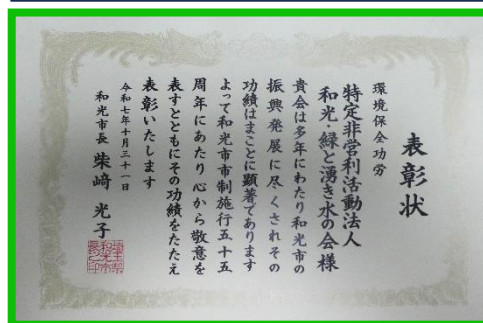 表彰状
環境保全功労
特定非営利活動法人
和光・緑と湧き水の会 様
貴会は多年にわたり和光市の
振興発展に尽くされその
功績はまことに顕著であります
よって和光市市制施行五十五
周年にあたり心から敬意を
表すとともにその功績をたたえ
表彰いたします
令和七年十月三十一日
和光市長 柴﨑 光子
埼玉県
和光市
長之印